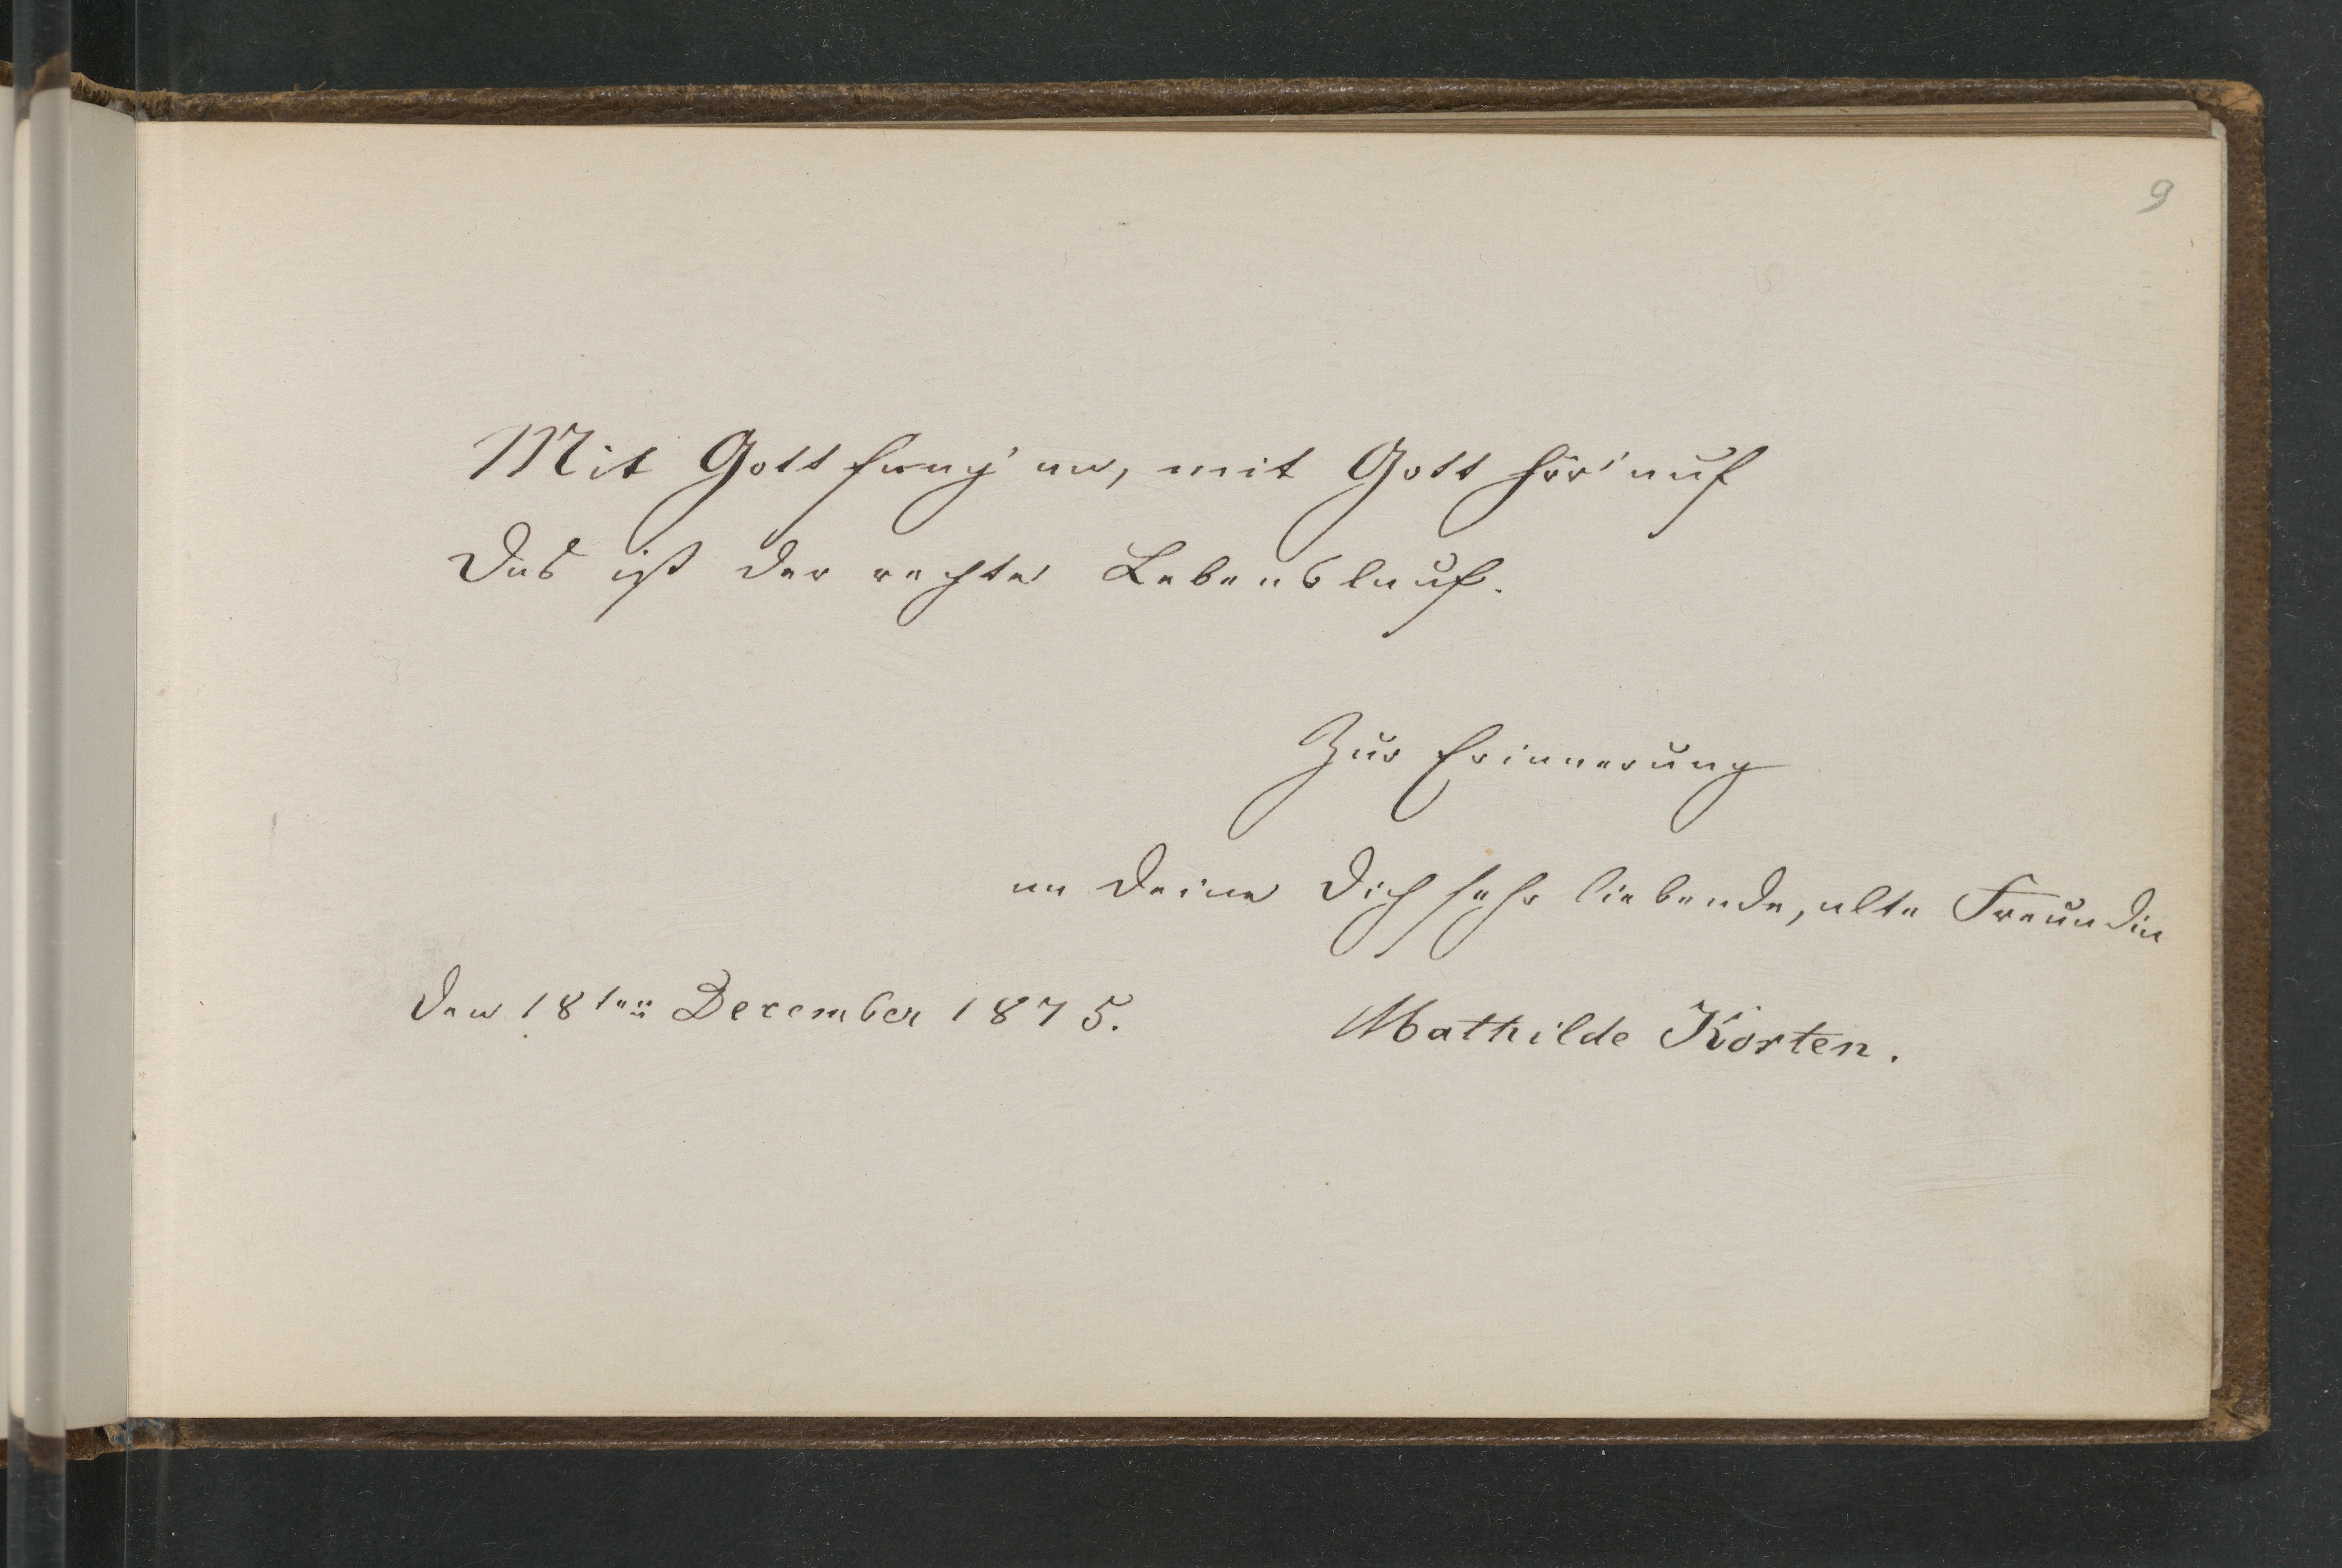 9
Mit Gott fang' an, mit Gott hör' auf
Das ist der rechte Lebenslauf.
Zur Erinnerung
an Deine Dich sehr liebende, alte Freundin
Den 18ten December 1875.
Mathilde Korten.